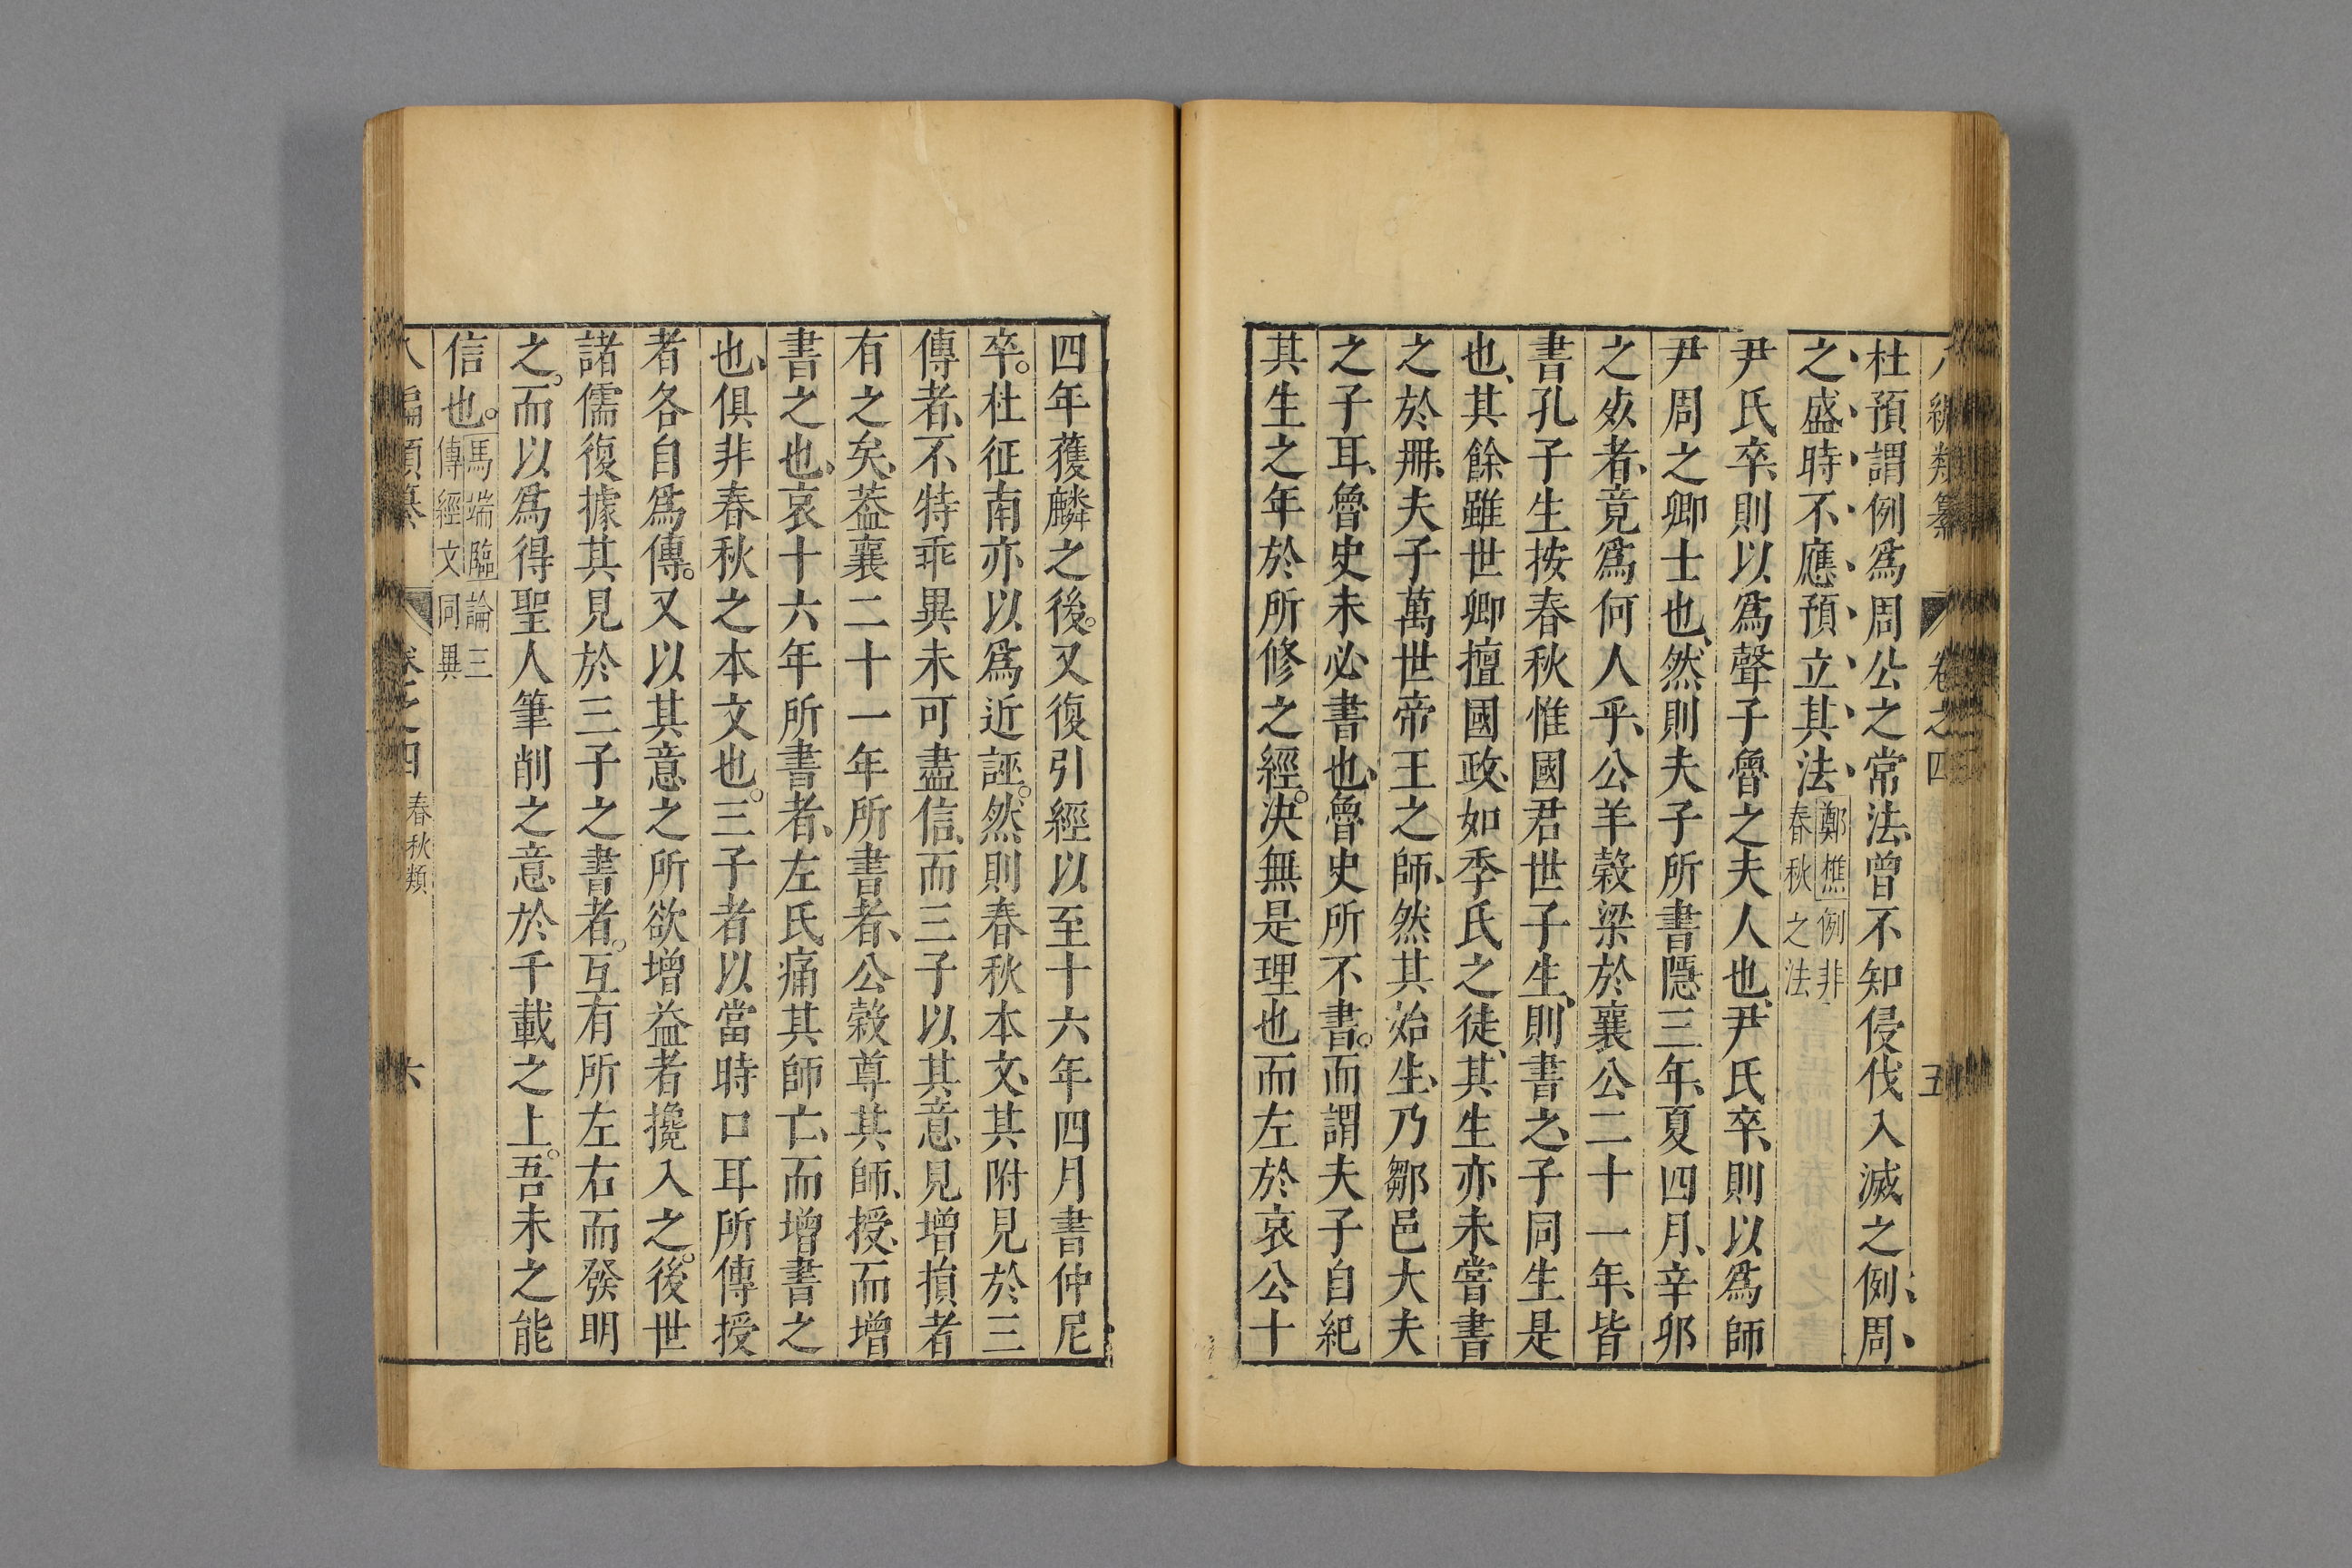 編類纂 卷之四 五
杜預謂例爲周公之常法、曾不知侵伐入滅之例、周、
之盛時不應預立其法、鄭樵論例非春秋之法
尹氏卒、則以爲聲子魯之夫人也、尹氏卒、則以爲師
尹周之卿士也、然則夫子所書隱三年、夏四月、辛卯
之歿者、竟爲何人乎、公羊榖梁於襄公二十一年、皆
書孔子生按春秋惟國君世子生、則書之、子同生是
也、其餘雖世卿擅國政、如季氏之徒、其生亦未嘗書
之於冊、夫子萬世帝王之師、然其始生、乃鄹邑大夫
之子耳、魯史未必書也、魯史所不書。而謂夫子自紀
其生之年於所修之經。決無是理也而左於哀公十
四年獲麟之後。又復引經以至十六年四月書仲尼
卒。杜征南亦以爲近誣。然則春秋本文、其附見於三
傳者、不特乖異未可盡信、而三子以其意見增損者
有之矣、葢襄二十一年所書者、公榖尊其師、授、而增
書之也、哀十六年所書者、左氏痛其師亡、而增書之
也、俱非春秋之本文也。三子者以當時口耳所傳授
者各自爲傳。又以其意之所欲增益者攙入之。後世
諸儒復據其見於三子之書者。互有所左右而發明
之。而以爲得聖人筆削之意、於千載之上。吾未之能
信也。馬端臨論三傳經文同異
八編類纂 卷之四 春秋類 六